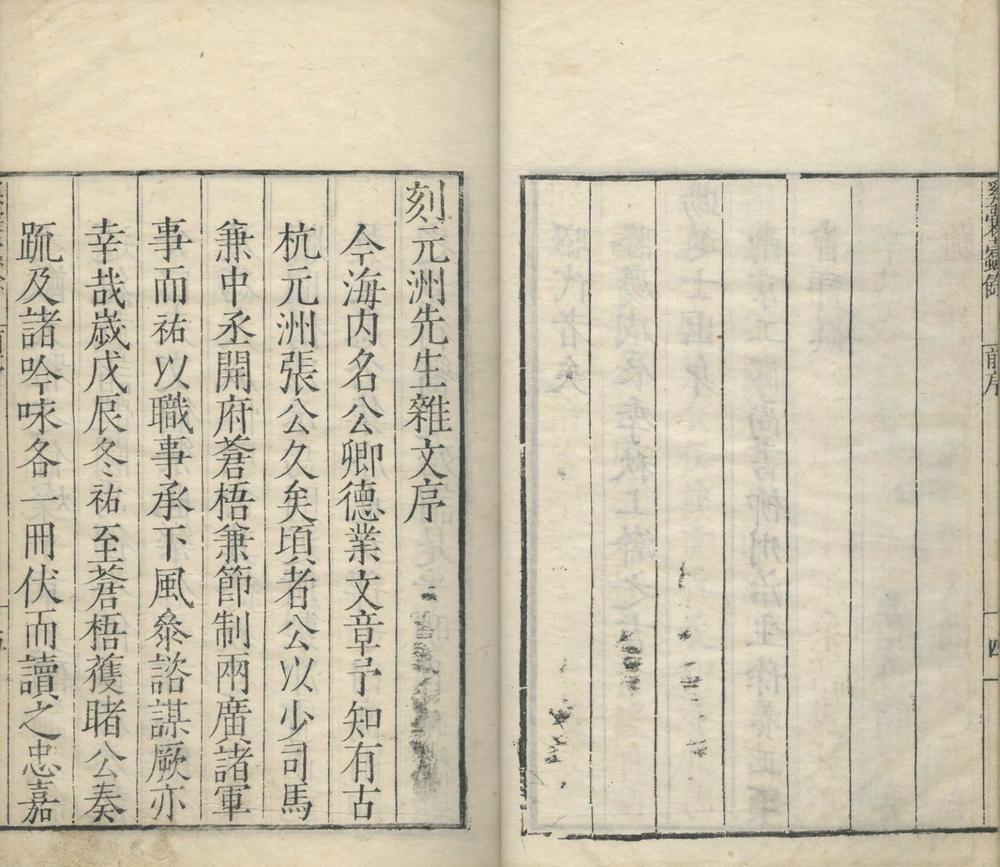 前序
四
刻元洲先生雜文序
今海内名公卿德業文章予知有古
杭元洲張公久矣頃者公以少司馬
兼中丞開府蒼梧兼節制兩廣諸軍
事而祐以職事承下風叅諮謀厥亦
幸哉嵗戊辰冬祐至蒼梧獲睹公奏
䟽及諸吟味各一冊伏而讀之忠嘉